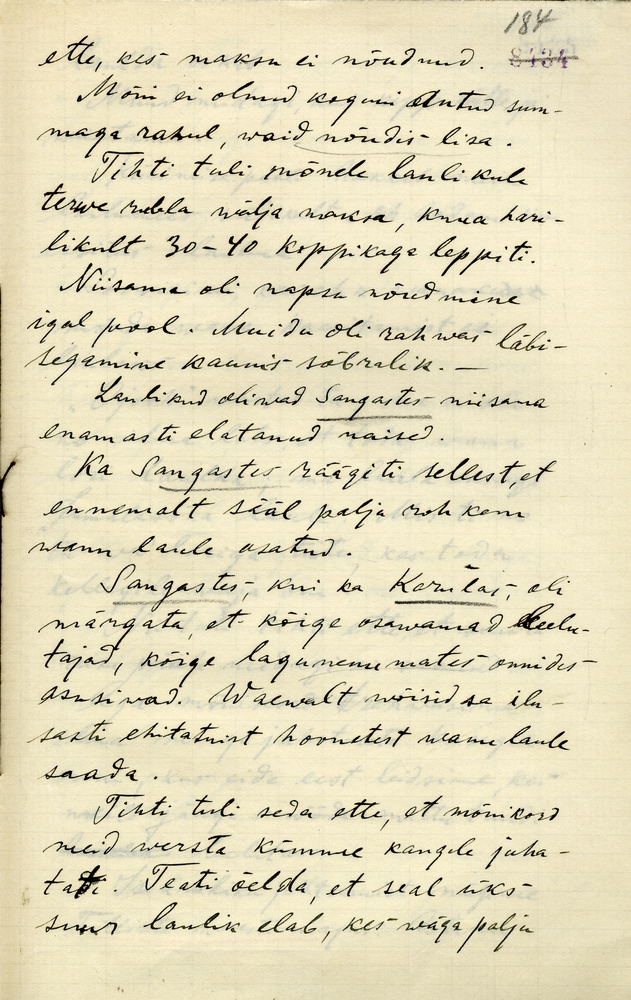 184
8434
ette, kes maksu ei nõudnud.
Mõni ei olnud koguni antud sum-
maga rahul, waid nõudis lisa.
Tihti tuli mõnele laulikule
terwe rubla wälja maksa, kuna hari-
likult 30-40 koppikaga leppiti.
Niisama oli napsu nõudmine
igal pool. Muidu oli rahwas läbi-
segamine kaunis sõbralik. —
Laulikud oliwad Sangastes niisama
enamasti elatanud naised.
Ka Sangastes räägiti sellest, et
ennemalt sääl palju rohkem
wanu laule osatud.
Sangastes, kui ka Karulas, oli
märgata, et kõige osawamad leelu-
tajad, kõige lagunenumates onnides
asusiwad. Waewalt wõisid sa ilu-
sasti ehitatuist hoonetest wanu laule
saada.
Tihti tuli seda ette, et mõnikord
meid wersta kümme kaugele juha-
tati. Teati öelda, et seal üks
suur laulik elab, kes wäga palju